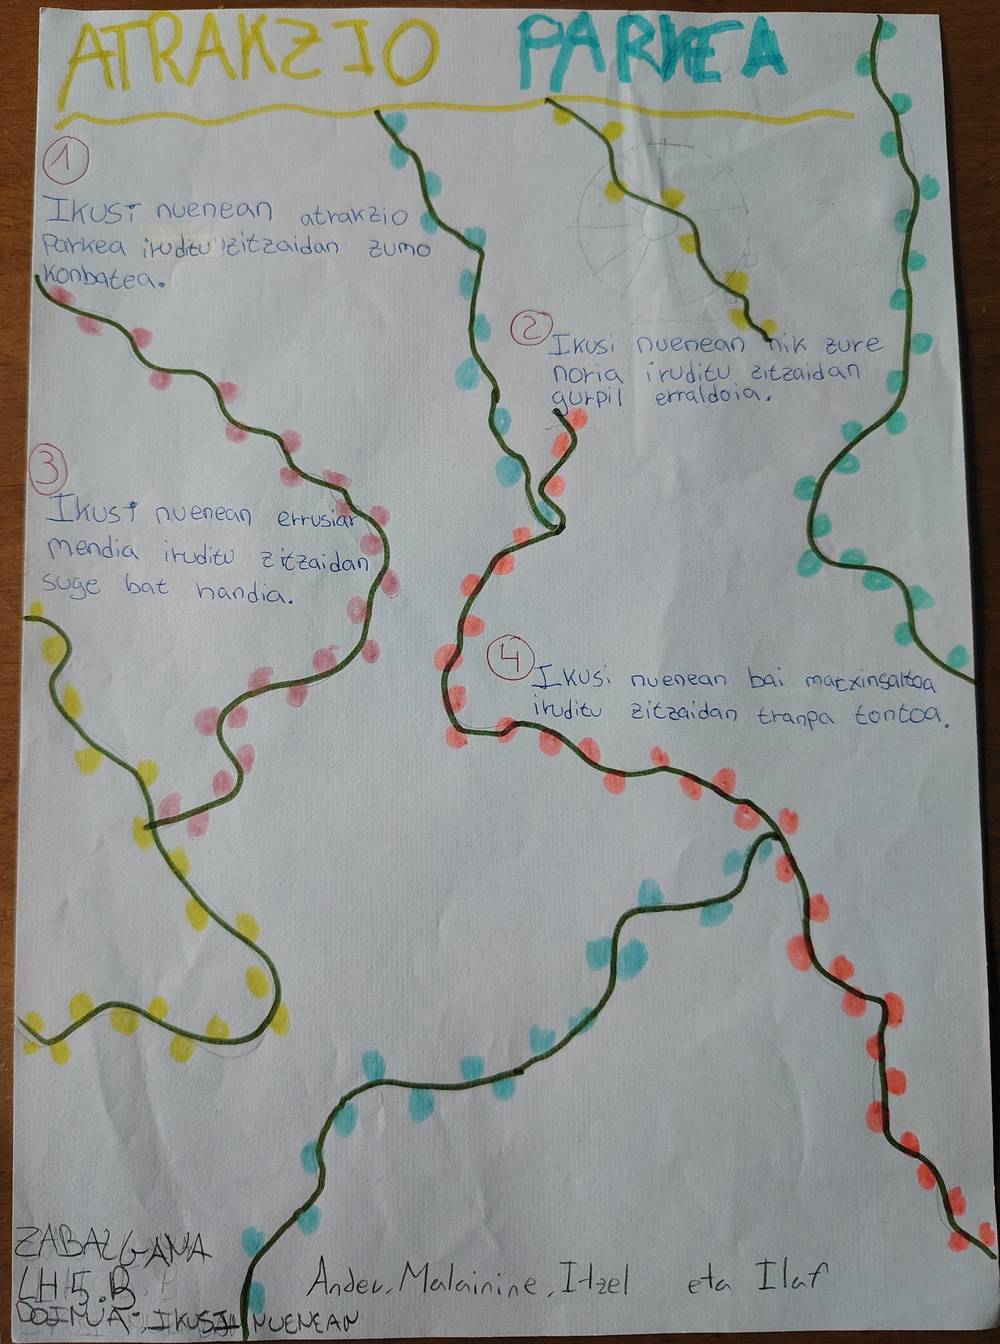 ATRAKZIO PARKEA
1
Ikusi nuenean atrakzio
Parkea iruditu zitzaidan zumo
konbatea.
2
Ikusi nuenean nik zure
noria iruditu zitzaidan
gurpil erraldoia.
3
Ikusi nuenean errusiar
mendia iruditu zitzaidan
suge bat handia.
4
Ikusi nuenean bai matxinsaltoa
iruditu zitzaidan tranpa tontoa.
ZABALGANA
LH 5.B
DOINUA: IKUSI NUENEAN
Ander, Malainine, Itzel eta Ilaf